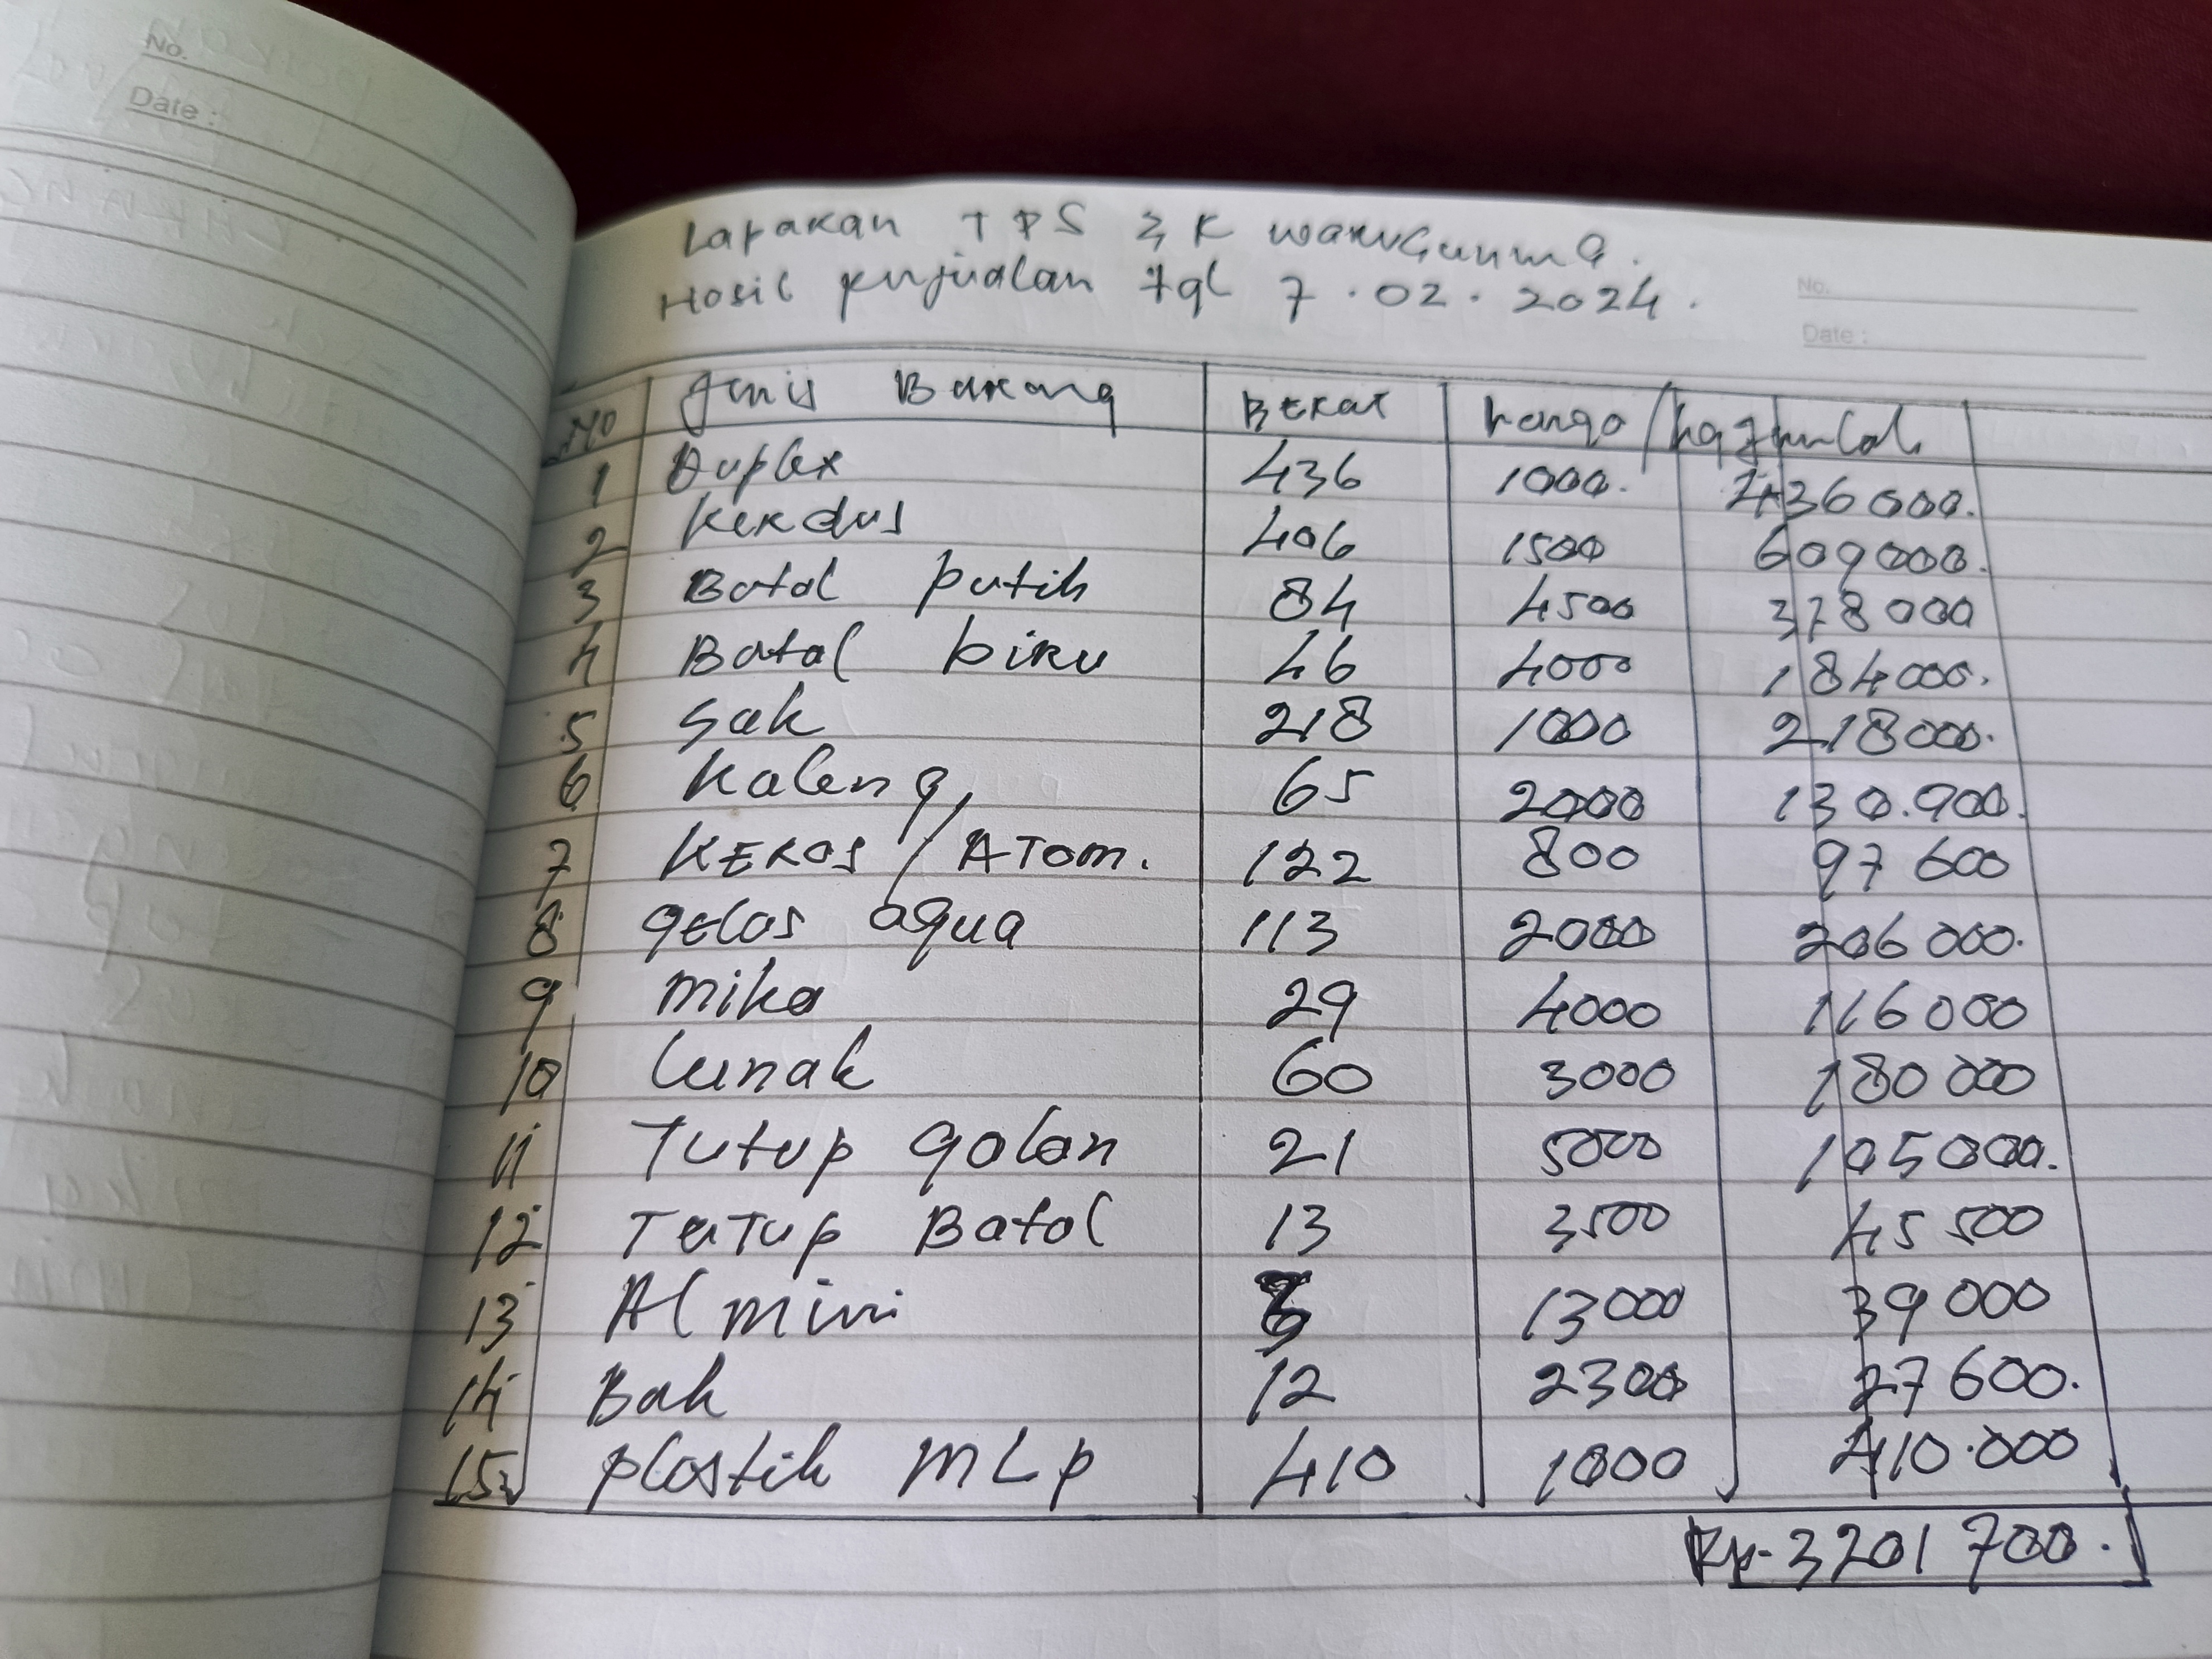 No.
Date :
Laparan TPS 3 R warugunung.
Hosil pnjualan tgl 7.02.2024.
No.
Date :
NO Jenis Barang BERAT harga / kg Jumlah
1 Duplex 436 1000. 436 000.
2 Kerdus 406 1500 609 000.
3 Botol putih 84 4500 378 000
4 Botol biru 46 4000 184 000.
5 Sak 218 1000 218 000.
6 Kaleng 65 2000 130.900.
7 KERAS / ATOM. 122 800 97 600
8 gelas aqua 113 2000 206 000.
9 mika 29 4000 116 000
10 Lunak 60 3000 180 000
11 Tutup galon 21 5000 105 000.
12 Tutup Botol 13 3500 45 500
13 Almini 3 13000 39 000
14 Bak 12 2300 27 600.
15 plastik MLP 410 1000 410.000
Rp. 3201 700.